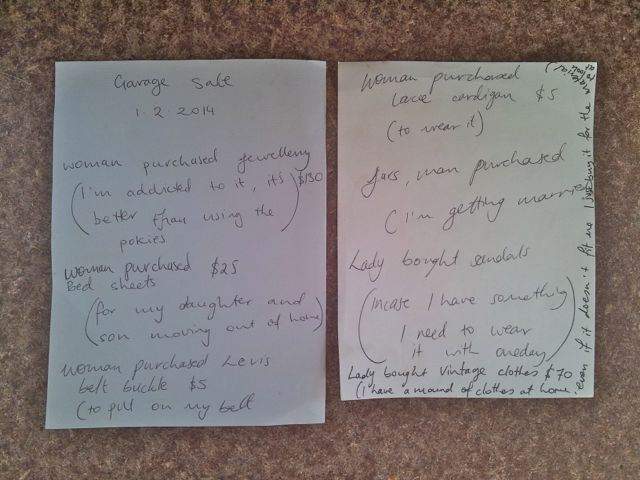 Garage Sale
1.2.2014
woman purchased jewellery
(I'm addicted to it, it's) $130
better than using the
pokies
woman purchased $25
Bed sheets
(for my daughter and
son moving out of home)
woman purchased Levis
belt buckle $5
(to put on my belt
Woman purchased
Lace cardigan $5
(to wear it)
Jars, man purchased
(I'm getting married
Lady bought sandals
(Incase I have something
I need to wear
it with oneday)
Lady bought Vintage clothes $70
(I have a mound of clothes at home.
even if it doesn't fit me I just buy it for the
material
to look
at